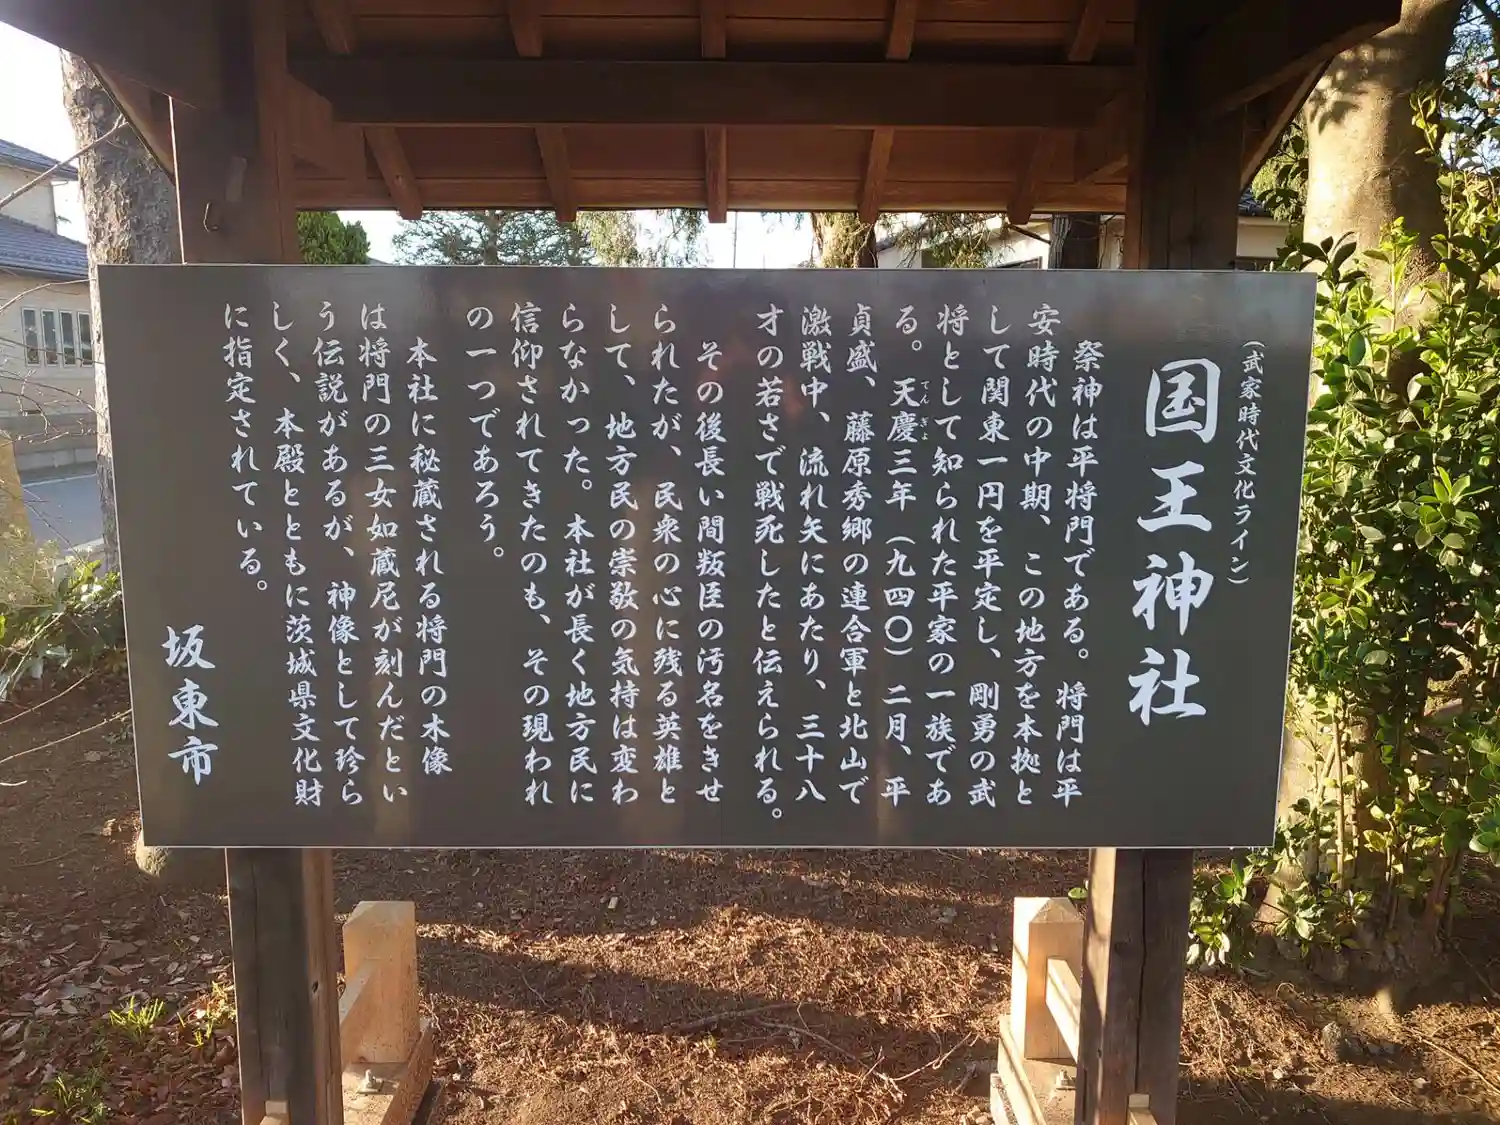 (武家時代文化ライン)
国王神社
祭神は平将門である。将門は平
安時代の中期、この地方を本拠と
して関東一円を平定し、剛勇の武
将として知られた平家の一族であ
る。天慶三年(九四〇)二月、平
てんぎょ
貞盛、藤原秀郷の連合軍と北山で
激戦中、流れ矢にあたり、三十八
才の若さで戦死したと伝えられる。
その後長い間叛臣の汚名をきせ
られたが、民衆の心に残る英雄と
して、地方民の崇敬の気持は変わ
らなかった。本社が長く地方民に
信仰されてきたのも、その現われ
の一つであろう。
本社に秘蔵される将門の木像
は将門の三女如蔵尼が刻んだとい
う伝説があるが、神像として珍ら
しく、本殿とともに茨城県文化財
に指定されている。
坂東市